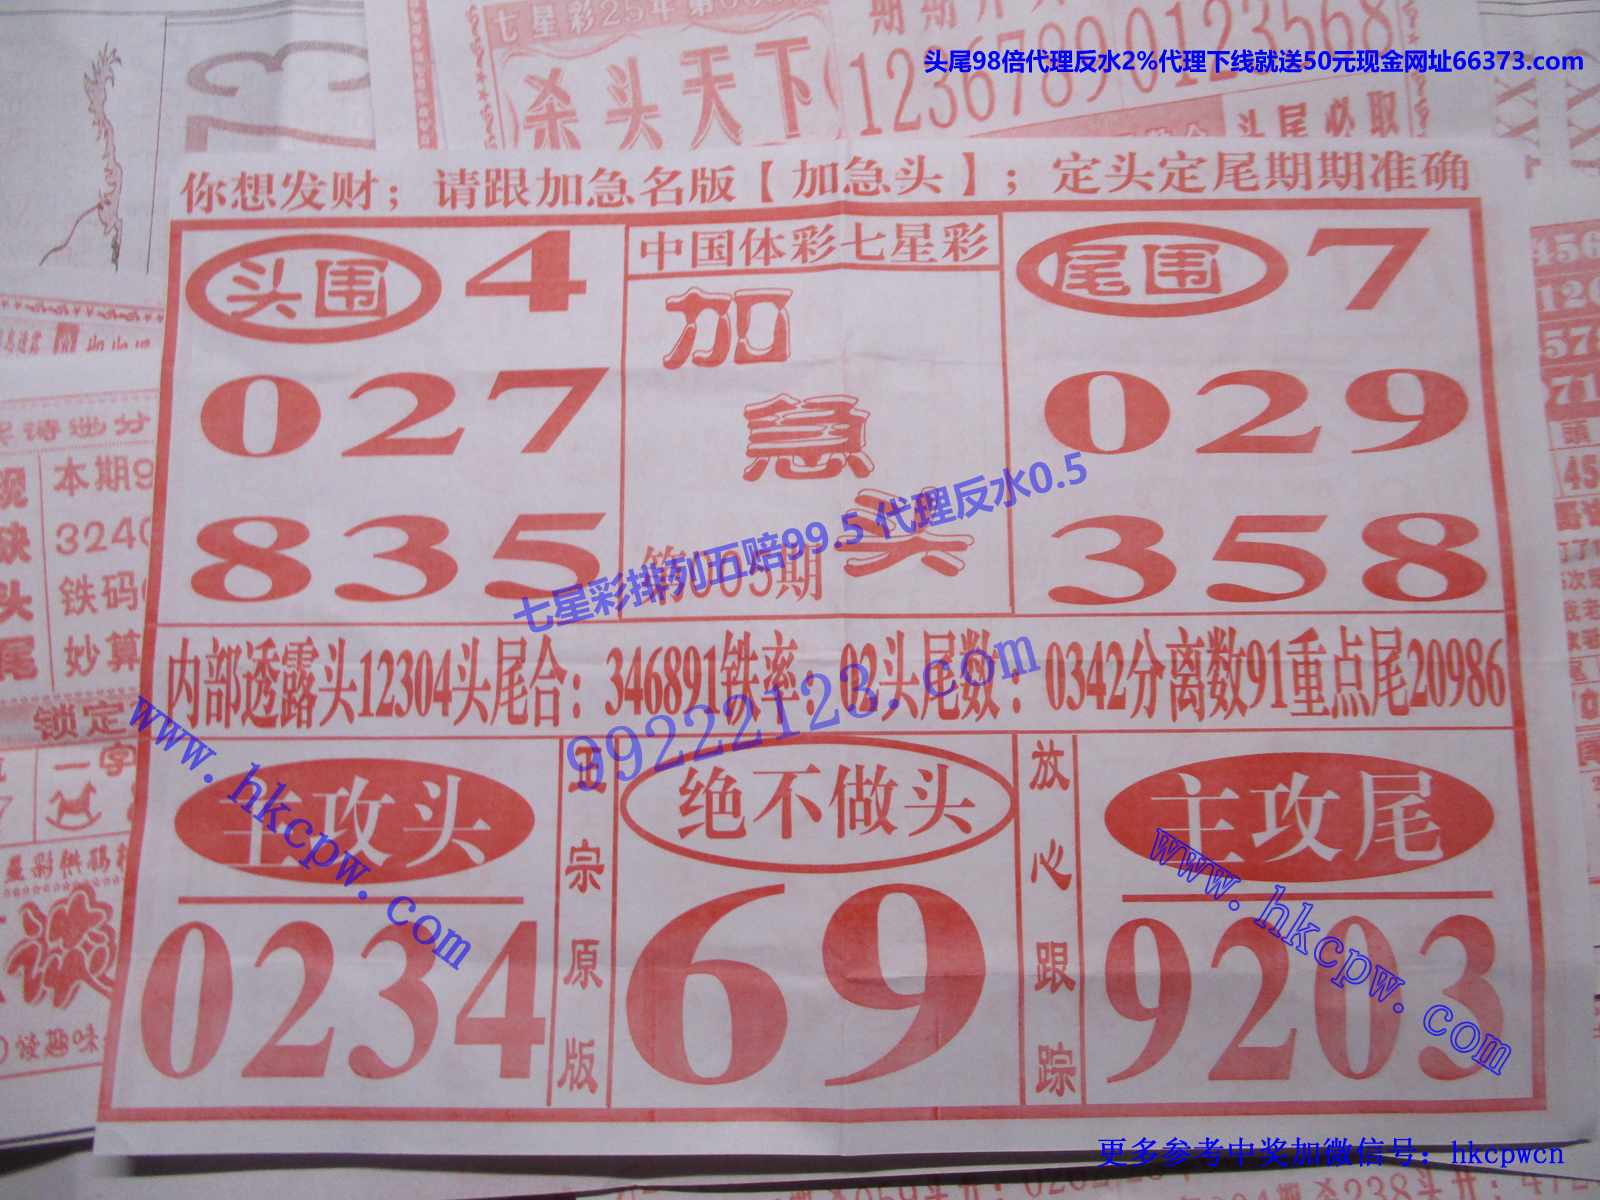 七星彩25年第
期期开
杀头天下
1236789 0123568
头尾98倍代理反水2%代理下线就送50元现金网址66373.com
头尾必取
你想发财；请跟加急名版【加急头】；定头定尾期期准确
头围 4
027
835
中国体彩七星彩
加急头
期
尾围 7
029
358
七星彩排列五赔99.5 代理反水0.5
内部透露头12304头尾合：346891铁率：02头尾数：0342分离数91重点尾20986
99222123.com
www.hkcpw.com
主攻头
0234
正宗原版
绝不做头
69
放心跟踪
主攻尾
9203
www.hkcpw.com
本期9
3240
铁码
妙算
锁定
一字
更多参考中奖加微信号：hkcpwcn